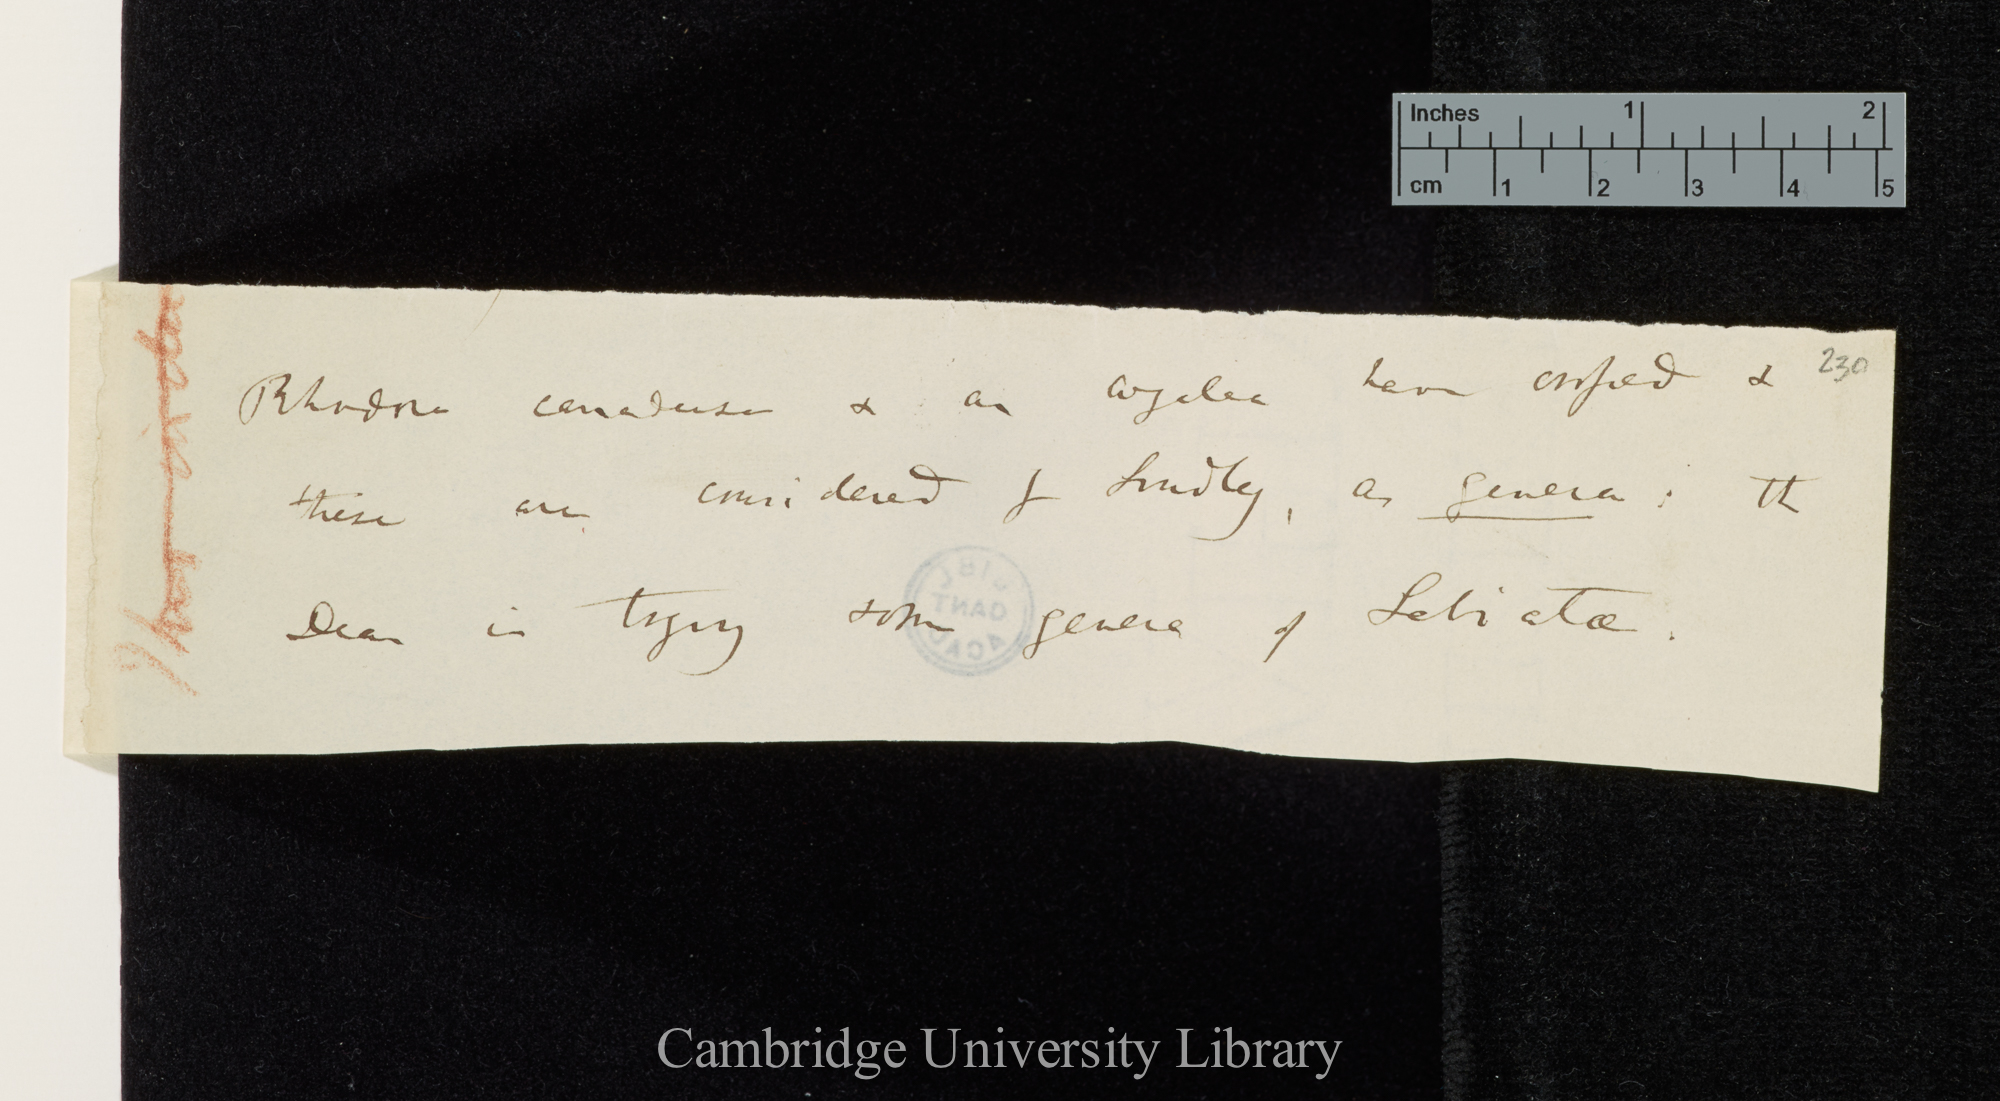 230
Rhodora canadense & an azalea have crossed &
these are considered by Lindley, as genera; the
Dean is trying some genera of Labiatæ.
Inches 1 2
cm 1 2 3 4 5
Cambridge University Library